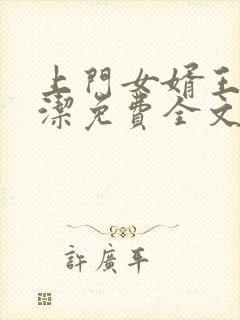 上門女婿王
潔免費全文
許廣平